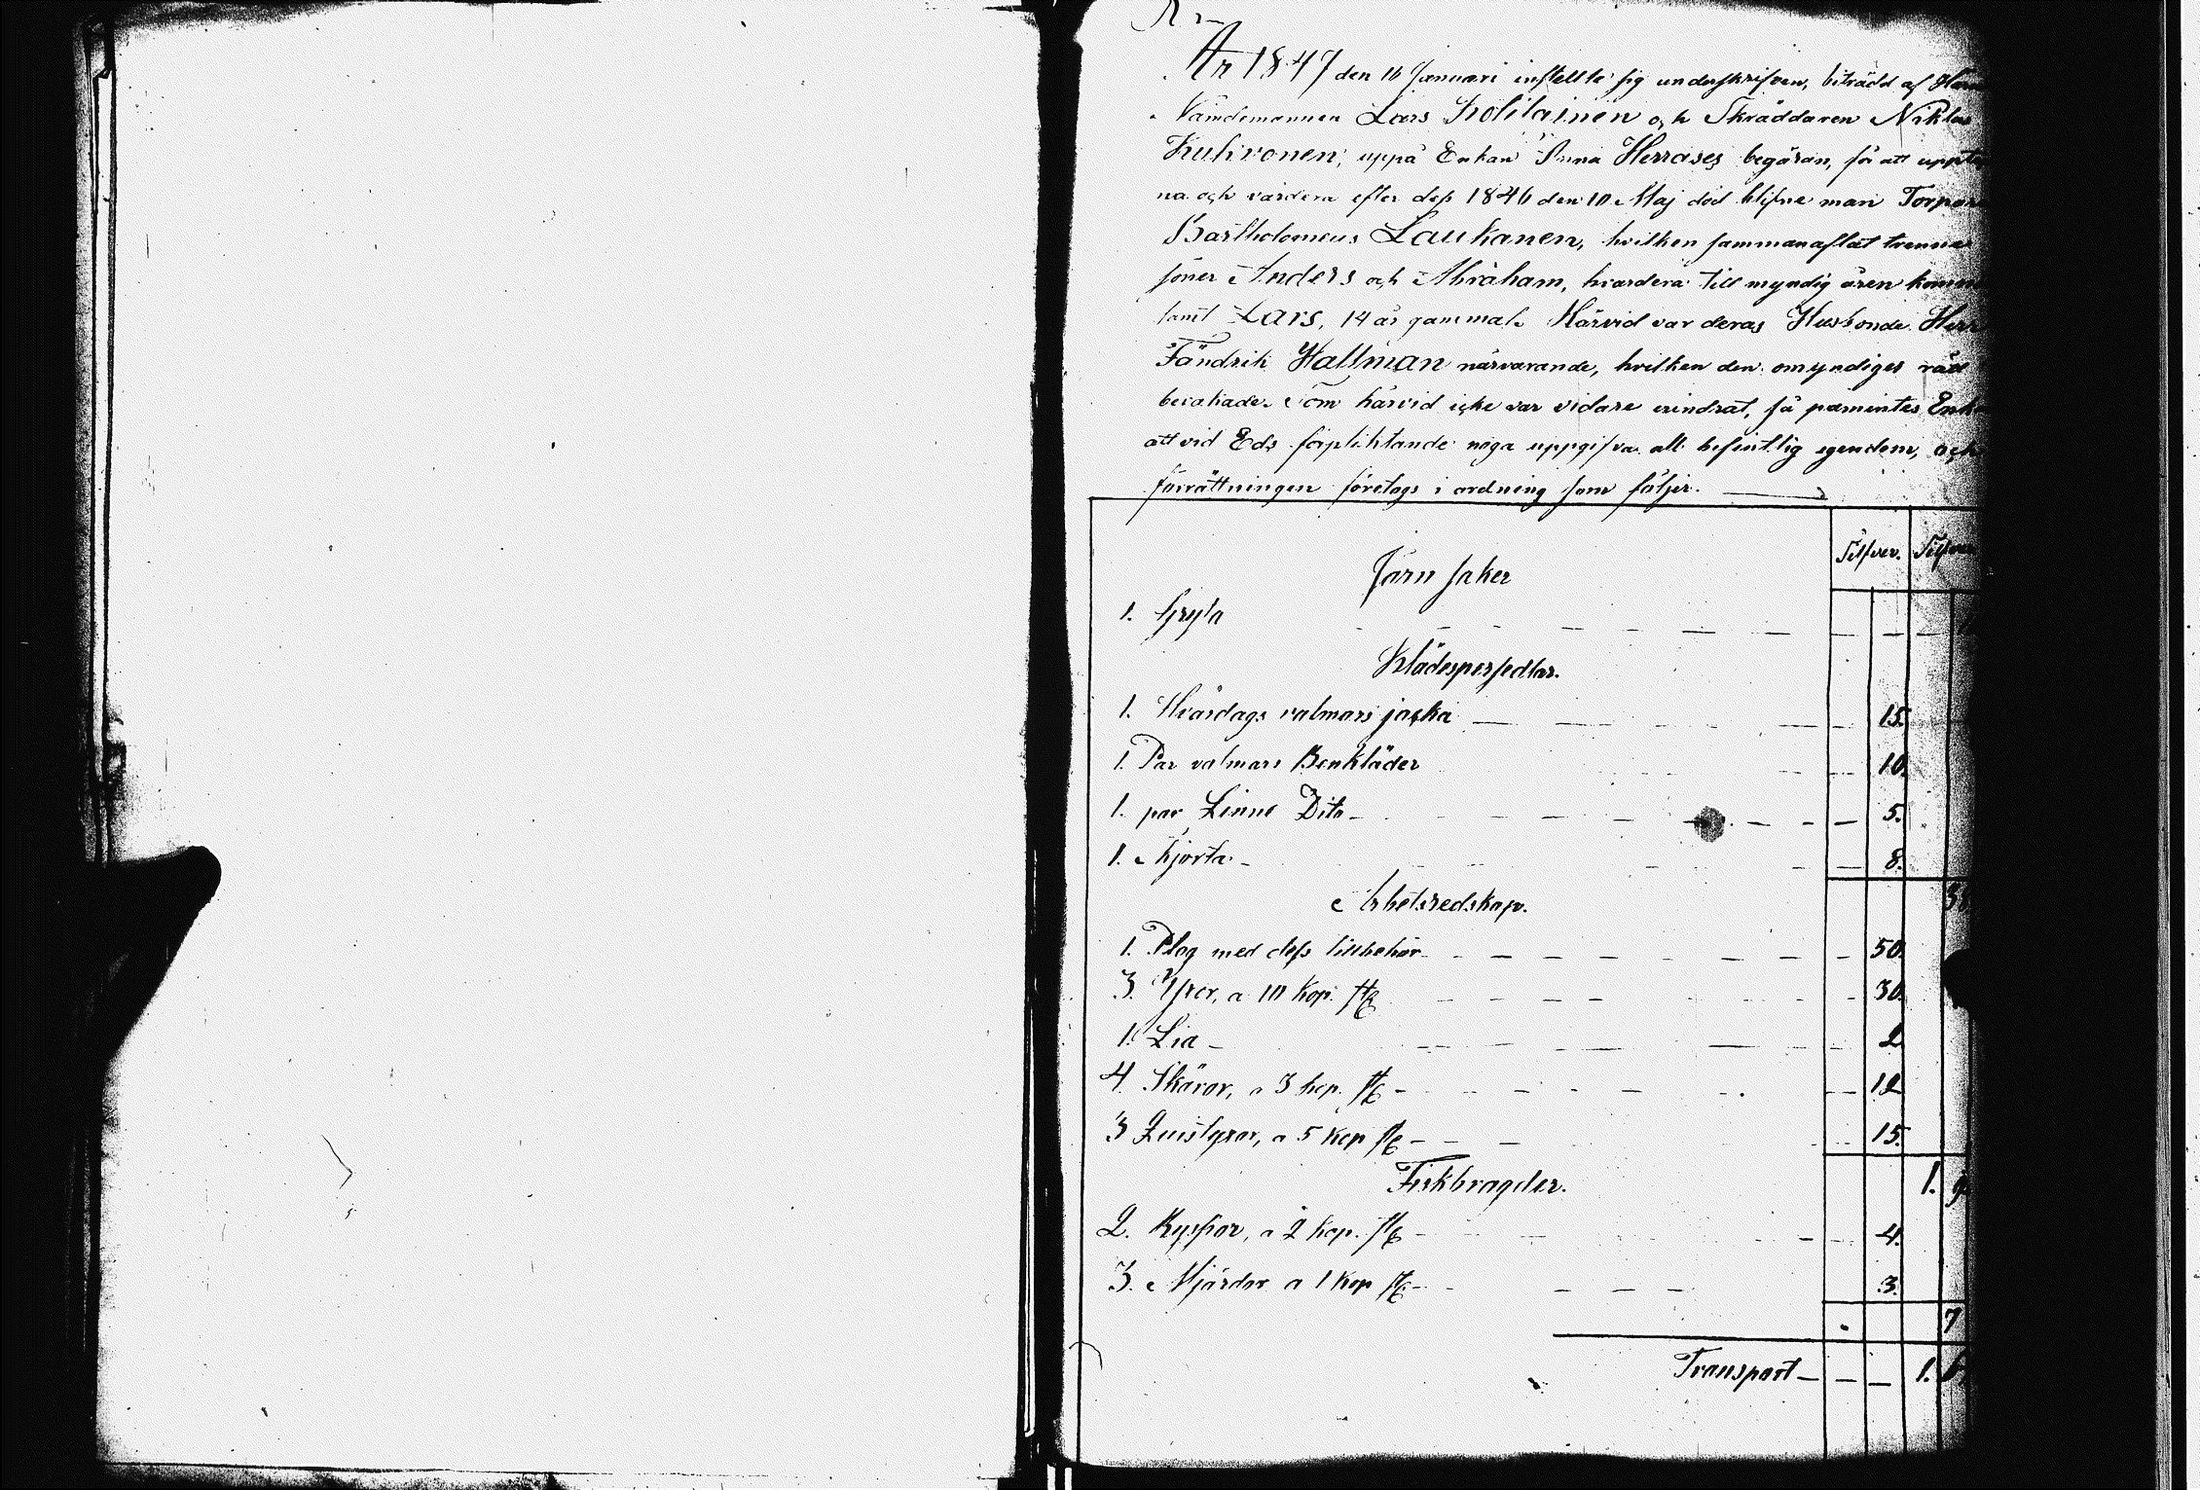 År 1847 den 16 Januari instellte sig underskrifven, biträdd af
Nämdemannen Lars Holilainen och Skräddaren Niklas
Kuhvonen, uppå Enkan Anna Herrases begäran, för att uppteck
na och värdera efter dess 1846 den 10 Maj död blifne man Torpar
Bartholomeus Laukanen, hvilken sammanaflat trenne
söner Anders och Abraham, hvardera till myndig åren komne
samt Lars, 14 år gammal. Härvid var deras Husbonde Herr
Fändrik Hallman närvarande, hvilken den omyndiges rätt
bevakade. Som härvid icke var vidare erindrat, så påmintes Enkan
att vid Eds förpliktande noga uppgifva all befintlig egendom, och
förrättningen företogs i ordning som följer.
Silfver. Silfver
Järn saker
1. Gryta
Klädespersedlar.
1. Hvardags valmars jacka 15.
1. Par valmars Benkläder 10.
1. par Linne Dito 5.
1. Skjorta 8.
Arbetsredskap. 38
1. Plog med dess tillbehör 50.
3. Yxor, a 10 kop. st 30.
1. Lia 2
4. Skäror, a 3 kop. st 12
3 Quistyxor, a 5 kop st 15.
Fiskbragder. 1. 9
2. Ryssior, a 2 kop. st 4.
3. Mjärdor a 1 kop st 3.
7
Transport 1.